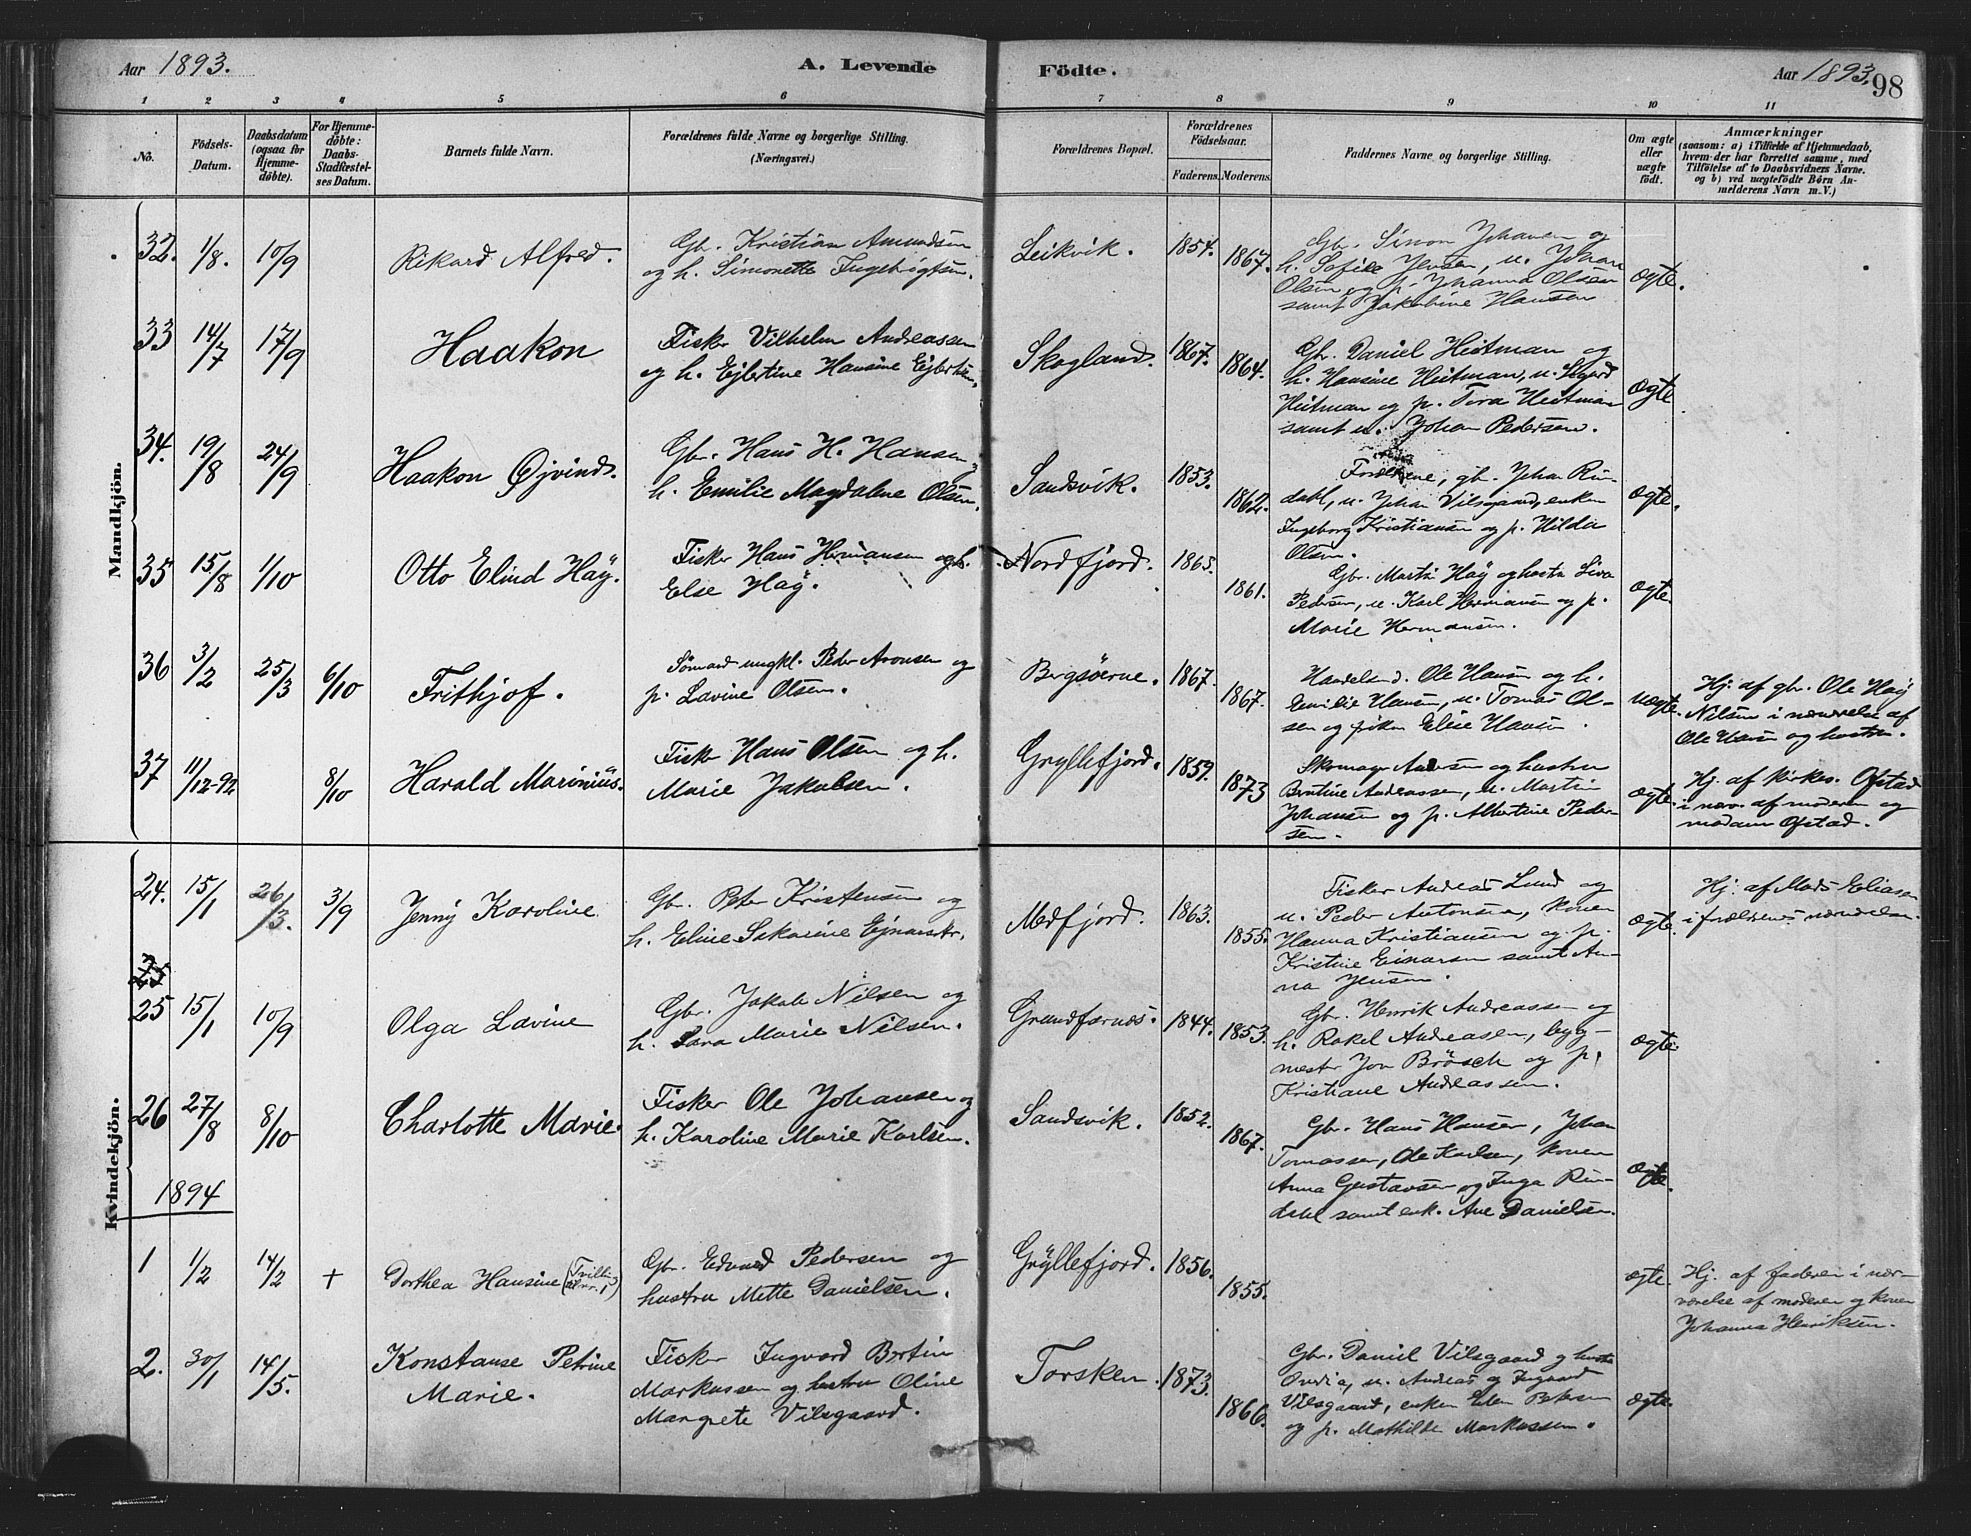 Aar 1893.
A. Levende
Födte.
Aar 1893.
98
1 2 3 4 5 6 7 8 9 10 11
No.
Födsels-
Datum.
Daabsdatum
(ogsaa for
Hjemme-
döbte).
For Hjemme-
döbte:
Daabs-
Stadfæstel-
ses Datum.
Barnets fulde Navn.
Forældrenes fulde Navne og borgerlige Stilling.
(Næringsvei.)
Forældrenes Bopæl.
Forældrenes
Födselsaar.
Faderens. Moderens.
Faddernes Navne og borgerlige Stilling.
Om ægte
eller
uægte
födt.
Anmærkninger
(saasom: a) i Tilfælde af Hjemmedaab,
hvem der har forrettet samme, med
Tilföielse af to Daabsvidners Navne.
og b) ved uægtefödte Börn An-
melderens Navn m. V.)
Mandkjön.
32. 1/8. 10/9 Rikard Alfred.
Gbr. Kristian Amundsen
og h. Simonette Ingebrigtsen.
Leikvik. 1854. 1867.
Gbr. Simon Johansen og
h. Sofie Jensen, u. Johan
Olsen og p. Johanna Olsen
samt Jakobine Hansen
ægte.
33 14/7 17/9 Haakon
Fisker Vilhelm Andreassen
og h. Ejlertine Hansine Ejlertsen.
Skogland. 1867. 1864.
Gbr. Daniel Heitman og
h. Hansine Heitman, u. Sigurd
Heitman og p. Tora Heitman
samt u. Johan Pedersen.
ægte
34. 19/8 24/9 Haakon Øjvind.
Gbr. Hans H. Hansen
h. Emilie Magdalene Olsen.
Sandsvik. 1853. 1862.
Forældrene, gb. Johan Rin-
dahl, u. Johan Vilsgaard, enken
Ingeborg Kristiansen og p. Hilda
Olsen.
ægte.
35 15/8 1/10 Otto Elind Häy.
Fisker Hans Hermansen og h.
Else Häy.
Nordfjord. 1865. 1861.
Gbr. Martin Häy og hustru Lina
Pedersen, u. Karl Hermansen og p.
Marie Hermansen.
ægte.
36 3/2 25/3 6/10 Frithjof.
Sömand ungkl. Peder Aronsen og
p. Lavine Olsen.
Bergsöerne. 1867. 1867.
Handelsmd. Ole Hansen og h.
Emilie Hansen, u. Tomas Ol-
sen og piken Elise Hansen.
uægte.
Hj. af gbr. Ole Häy
Nilsen i nærværelse af
Ole Hansen og hustru.
37 11/12-92 8/10 Harald Marinius.
Fisker Hans Olsen og h.
Marie Jakobsen.
Gryllefjord. 1859. 1873
Skomager Andersen og hustru
Berntine Andreassen, u. Martin
Johansen og p. Albertine Peder-
sen.
ægte.
Hj. af kirkes. Ofstad
i nærv. af moderen og
madam Ofstad.
Kvindekjön.
24. 15/1 26/3. 3/9 Jenny Karoline
Gbr. Peter Kristensen og
h. Eline Sakarine Ejnarsdtr.
Medfjord. 1863. 1855.
Fisker Andreas Lund og
u. Peder Antonsen, konen
Hanna Kristiansen og p.
Kristine Einarsen samt An-
na Jensen.
ægte.
Hj. af Mads Eliasen
i forældrenes nærværelse.
25
25 15/1 10/9 Olga Lavine
Gbr. Jakob Nilsen og
h. Sara Marie Nilsen.
Grundfarnæs. 1844. 1853.
Gbr. Henrik Andreassen og
h. Rakel Andreassen, byg-
mester Jon Brösch og p.
Kristiane Andreassen.
ægte.
26 27/8 8/10 Charlotte Marie.
Fisker Ole Johansen og
h. Karoline Marie Karlsen.
Sandsvik. 1852. 1867.
Gbr. Hans Hansen, Johan
Tomassen, Ole Karlsen, konen
Anna Gustavsen og Inga Rin-
dahl samt enk. Ane Danielsen.
ægte.
1894
1 1/2 14/2 + Dorthea Hansine (Tvilling nr. 1)
Gbr. Edvard Pedersen og
hustru Mette Danielsen.
Gryllefjord. 1856. 1855.
ægte.
Hj. af faderen i nær-
værelse af moderen og konen
Johanna Henriksen.
2. 30/1 14/5. Konstanse Petrine
Marie.
Fisker Ingvard Bertin
Markussen og hustru Oline
Margrete Vilsgaard.
Torsken. 1873. 1866.
Gbr. Daniel Vilsgaard og hustru
Ovedia, u. Andreas og Ingvard
Vilsgaard, enken Elen Petersen
og p. Mathilde Markussen.
ægte.